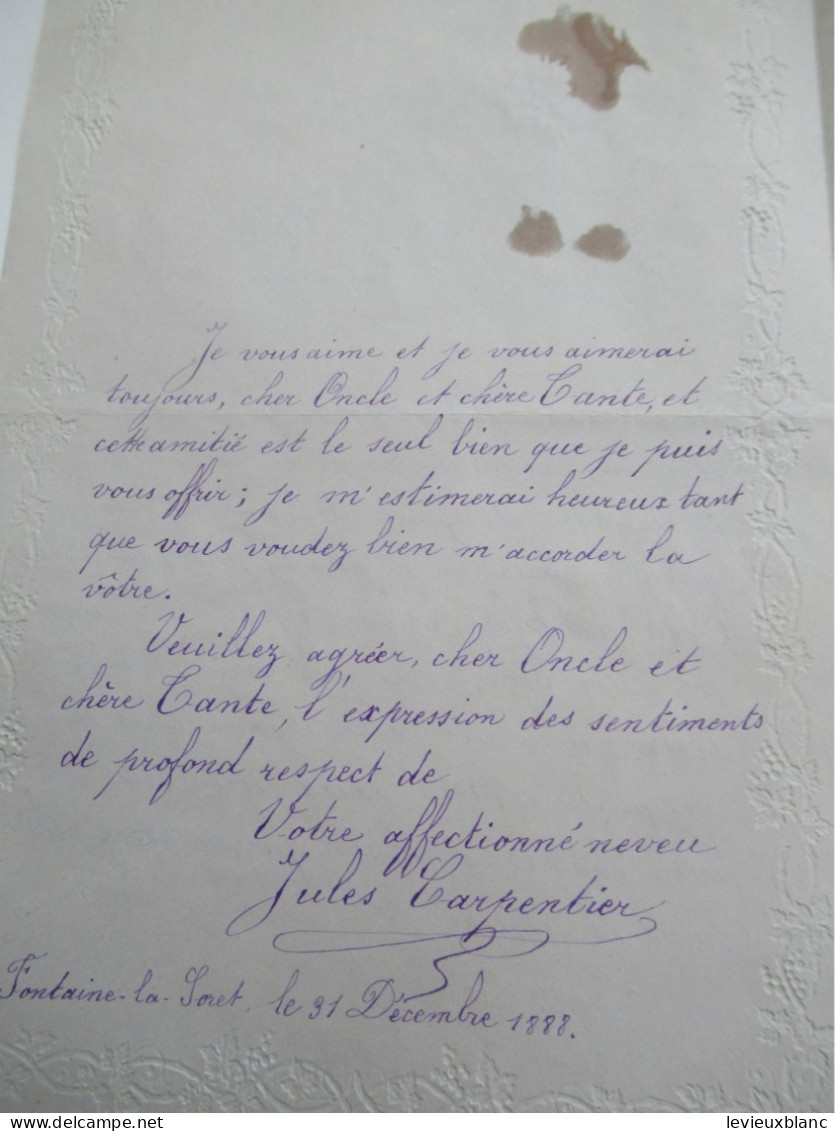 Je vous aime et je vous aimerai
toujours, cher Oncle et chère Tante, et
cette amitié est le seul bien que je puis
vous offrir; je m'estimerai heureux tant
que vous voudez bien m'accorder la
vôtre.
Veuillez agréer, cher Oncle et
chère Tante, l'expression des sentiments
de profond respect de
Votre affectionné neveu
Jules Carpentier
Fontaine-la-Soret, le 31 Décembre 1888.
levieuxblanc